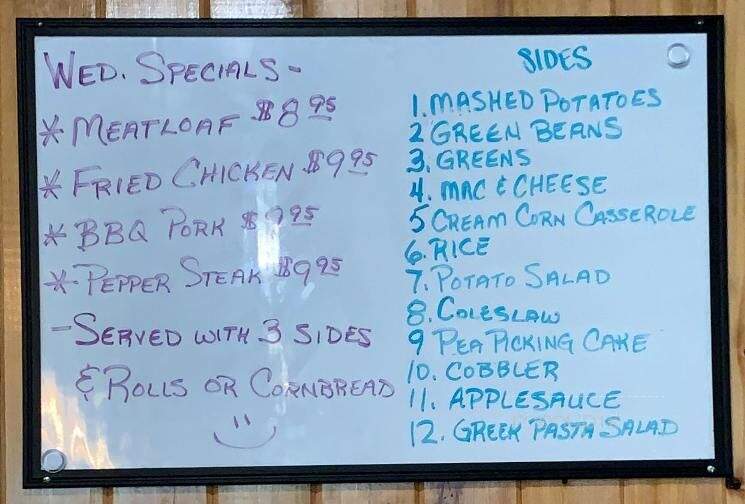 WED. SPECIALS -
* MEATLOAF $8.95
* FRIED CHICKEN $9.95
* BBQ PORK
* PEPPER STEAK $9.95
- SERVED WITH 3 SIDES
& ROLLS OR CORNBREAD
SIDES
1. MASHED POTATOES
2 GREEN BEANS
3. GREENS
4. MAC & CHEESE
5 CREAM CORN CASSEROLE
6. RICE
7. POTATO SALAD
8. COLESLAW
9 PEA PICKING CAKE
10. COBBLER
11. APPLESAUCE
12. GREEK PASTA SALAD